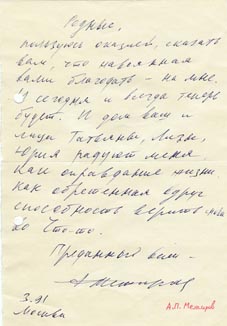 Родные,
пользуюсь оказией, сказать
вам, что навеянная
вами благодать – на мне.
И сегодня и всегда теперь
будет. И дом ваш и
лица Татьяны, Лизы,
Юрия радуют меня
как оправдание жизни
как обретенная вдруг
способность верить
во что-то.
Преданный вам –
А Межиров
3.91
Москва
А.П. Межиров